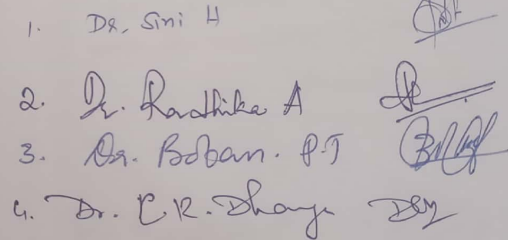 1. Dr. Sini H
2. Dr. Radhika A
3. Dr. Boban. P.T
4. Dr. C.R. Dhanya